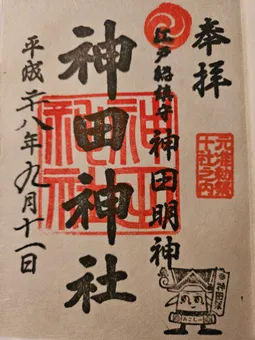 奉拝
元准勅祭
十社之内
江戸総鎮守 神田明神
神田神社
神田神社
平成二十八年九月十一日
神田祭